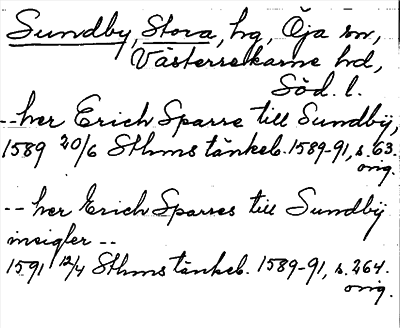 Sundby, Stora, hg, Öja sn,
Västerrekarne hd,
Söd. l.
--her Erich Sparre till Sundbÿ,
1589 20/6 Sthms tänkeb. 1589-91, s. 63.
orig.
-- her Erich Sparres till Sundbÿ
insigler --
1591 12/4 Sthms tänkeb. 1589-91, s. 264.
orig.